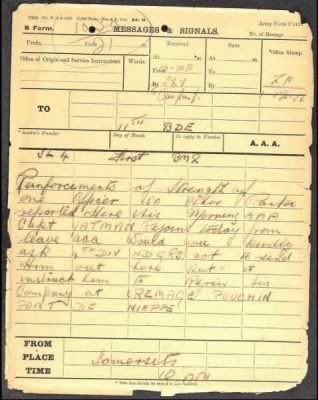 "B" Form.
MESSAGES & SIGNALS.
Army Form C
No. of Message
Prefix
Code
Received
Sent
Office Stamp.
Office of Origin and Service Instructions.
Words
At
From
By
To
By
TO
11TH BDE
Sender's Number
Day of Month
In reply to Number
A. A. A.
SL 4
First
BM2
Reinforcements of strength of
one officer 150 other Ranks
reported here this Morning AAA
Capt YATMAN Rejoin today from
leave aaa Would you kindly
ask 4TH DIV HDQRS not to send
Him out here But to
instruct him to Rejoin his
Company at
PONT DE NIEPPE
FROM
PLACE
TIME
Somersets